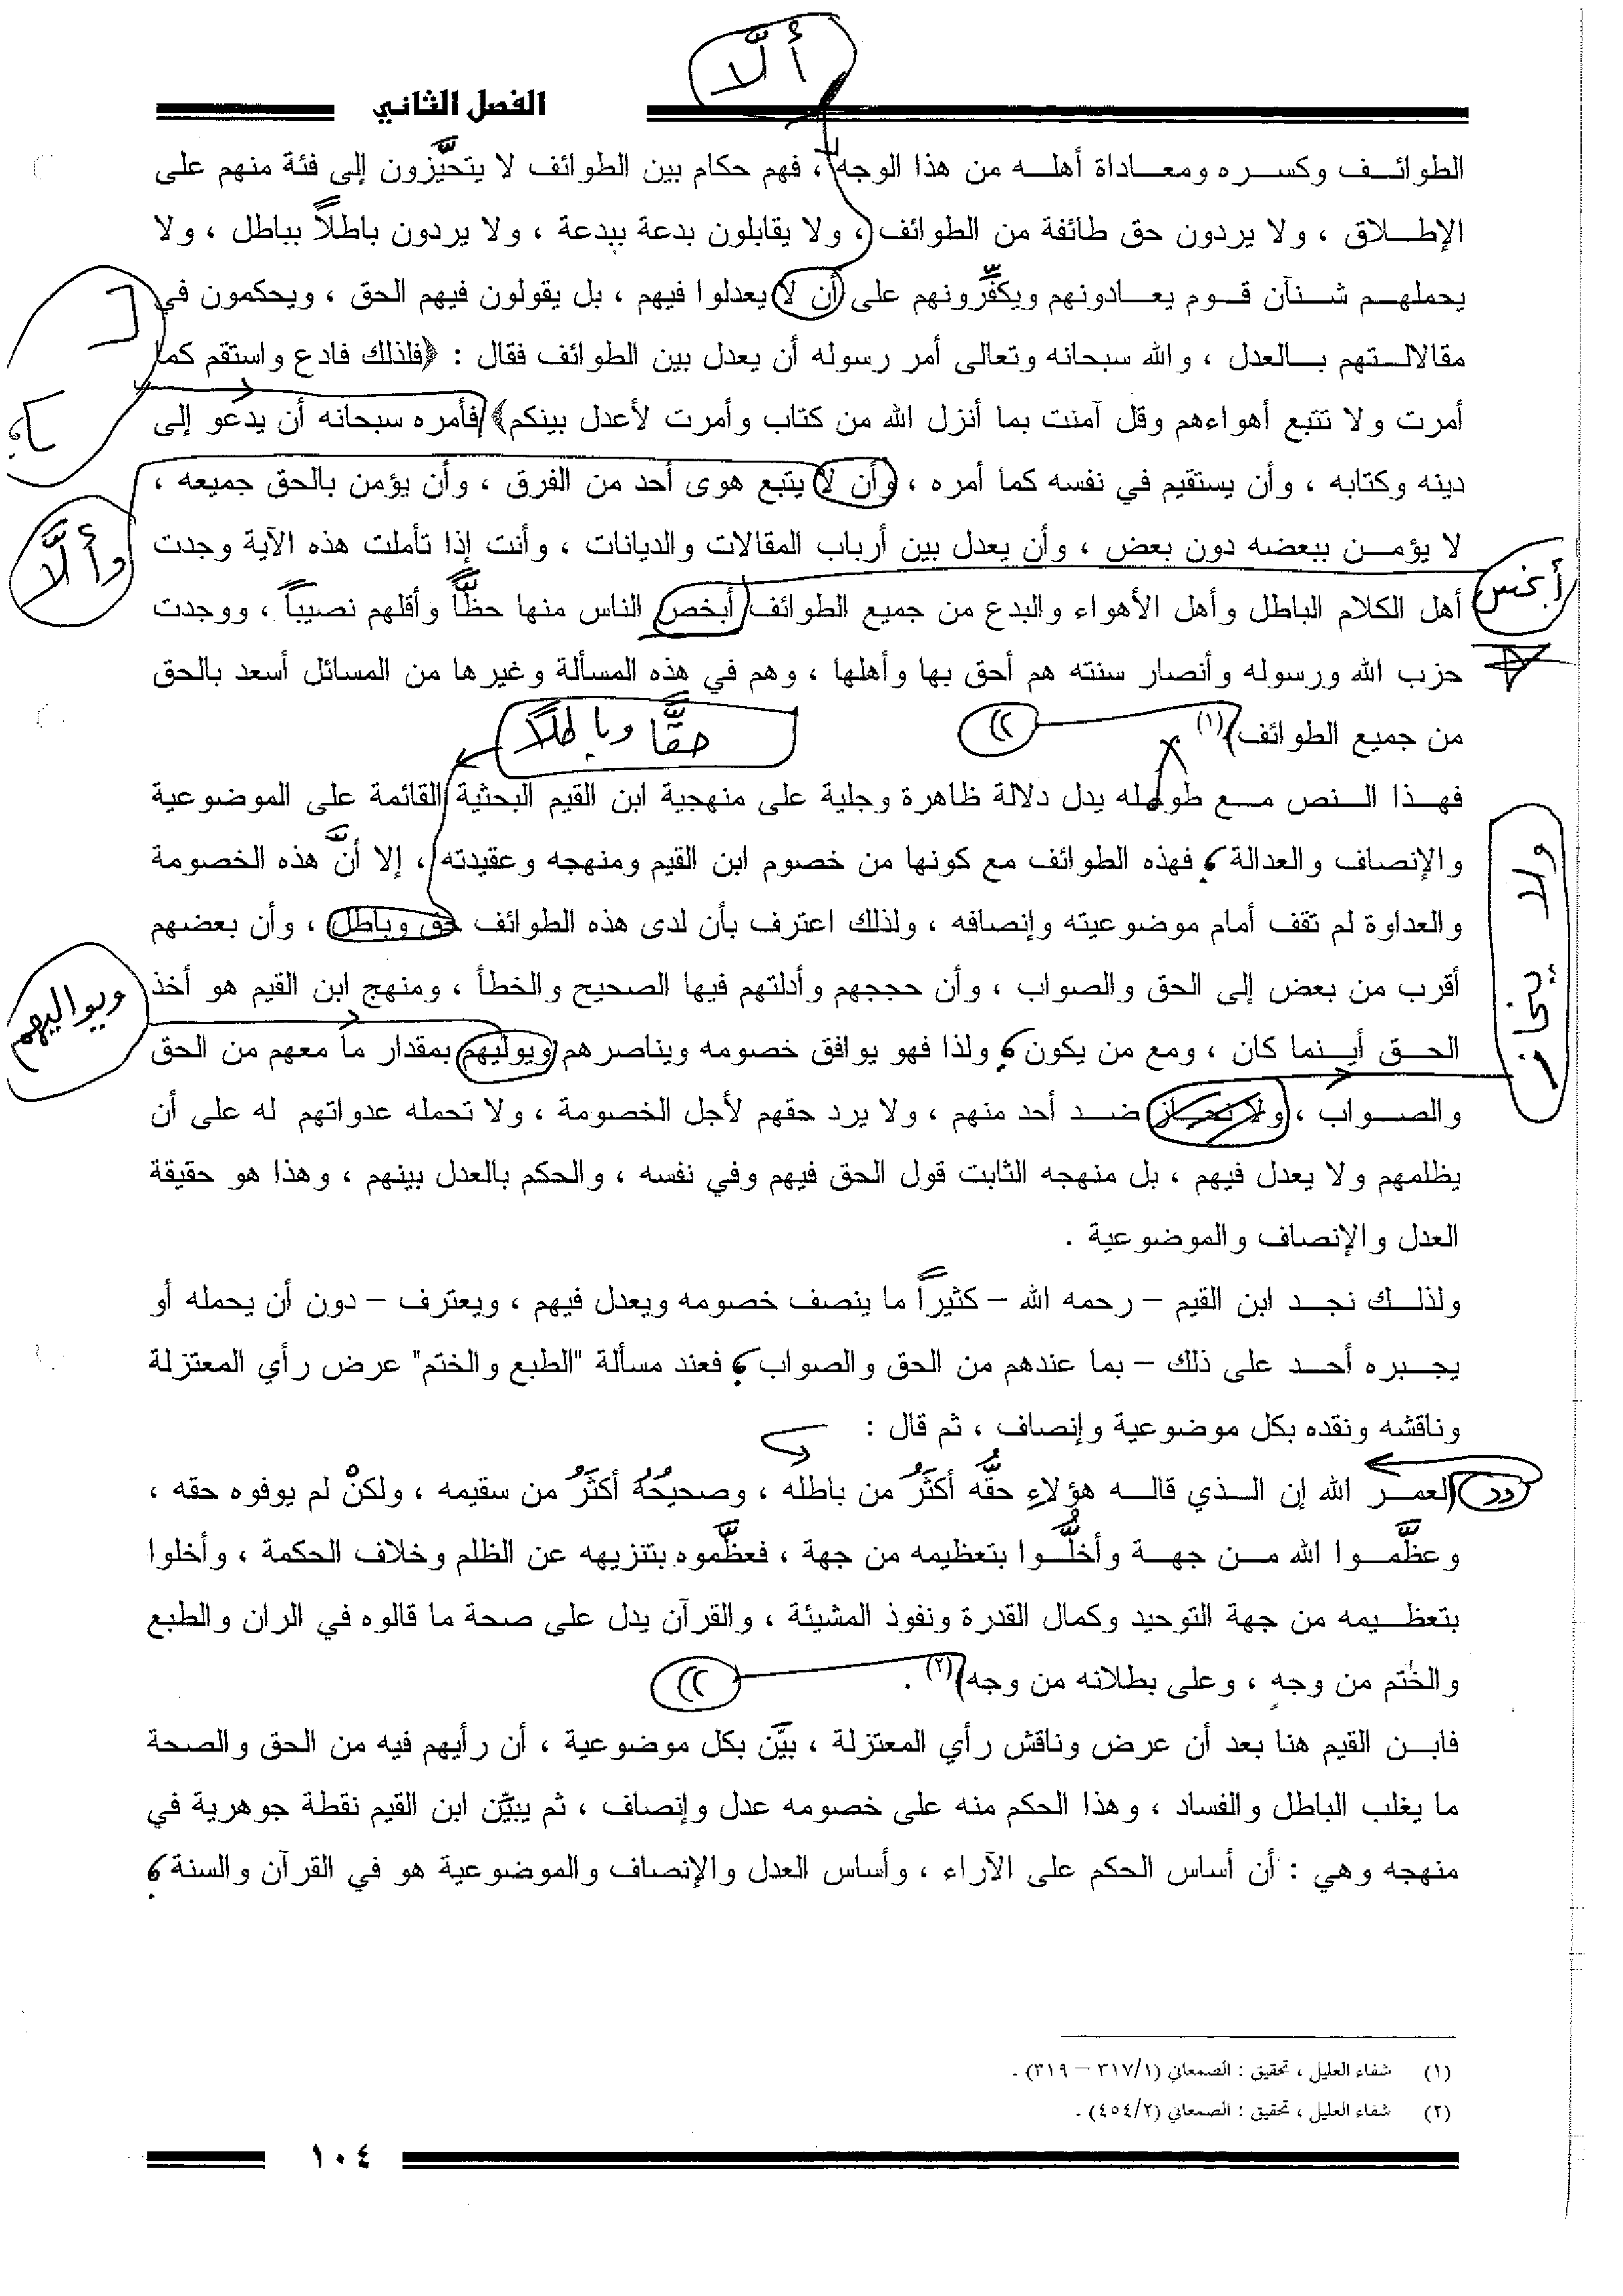 ألَّا
الفصل الثاني
الطوائف وكسره ومعاداة أهله من هذا الوجه ، فهم حكام بين الطوائف لا يتحيَّزون إلى فئة منهم على
الإطلاق ، ولا يردون حق طائفة من الطوائف ، ولا يقابلون بدعة ببدعة ، ولا يردون باطلاً بباطل ، ولا
يحملهم شنآن قوم يعادونهم ويكفِّرونهم على أن لا يعدلوا فيهم ، بل يقولون فيهم الحق ، ويحكمون في
مقالالتهم بالعدل ، والله سبحانه وتعالى أمر رسوله أن يعدل بين الطوائف فقال : ﴿فلذلك فادع واستقم كما
أمرت ولا تتبع أهواءهم وقل آمنت بما أنزل الله من كتاب وأمرت لأعدل بينكم﴾ فأمره سبحانه أن يدعو إلى
دينه وكتابه ، وأن يستقيم في نفسه كما أمره ، وأن لا يتبع هوى أحد من الفرق ، وأن يؤمن بالحق جميعه ،
وألَّا
لا يؤمن ببعضه دون بعض ، وأن يعدل بين أرباب المقالات والديانات ، وأنت إذا تأملت هذه الآية وجدت
أبخس
أهل الكلام الباطل وأهل الأهواء والبدع من جميع الطوائف أبخص الناس منها حظّاً وأقلهم نصيباً ، ووجدت
حزب الله ورسوله وأنصار سنته هم أحق بها وأهلها ، وهم في هذه المسألة وغيرها من المسائل أسعد بالحق
من جميع الطوائف (١) ))
حقًّا وباطلًا
فهذا النص مع طوله يدل دلالة ظاهرة وجلية على منهجية ابن القيم البحثية القائمة على الموضوعية
والإنصاف والعدالة ؛ فهذه الطوائف مع كونها من خصوم ابن القيم ومنهجه وعقيدته ، إلا أنَّ هذه الخصومة
والعداوة لم تقف أمام موضوعيته وإنصافه ، ولذلك اعترف بأن لدى هذه الطوائف حق وباطل ، وأن بعضهم
أقرب من بعض إلى الحق والصواب ، وأن حججهم وأدلتهم فيها الصحيح والخطأ ، ومنهج ابن القيم هو أخذ
ويواليهم
الحق أينما كان ، ومع من يكون ؛ ولذا فهو يوافق خصومه ويناصرهم ويوليهم بمقدار ما معهم من الحق
ولا ينحاز
والصواب ، ولا نحاز ضد أحد منهم ، ولا يرد حقهم لأجل الخصومة ، ولا تحمله عدواتهم له على أن
يظلمهم ولا يعدل فيهم ، بل منهجه الثابت قول الحق فيهم وفي نفسه ، والحكم بالعدل بينهم ، وهذا هو حقيقة
العدل والإنصاف والموضوعية .
ولذلك نجد ابن القيم – رحمه الله – كثيراً ما ينصف خصومه ويعدل فيهم ، ويعترف – دون أن يحمله أو
يجبره أحد على ذلك – بما عندهم من الحق والصواب ؛ فعند مسألة "الطبع والختم" عرض رأي المعتزلة
وناقشه ونقده بكل موضوعية وإنصاف ، ثم قال :
(( لعمر الله إن الذي قاله هؤلاءِ حقُّه أكثَرُ من باطله ، وصحيحُهُ أكثَرُ من سقيمه ، ولكنْ لم يوفوه حقه ،
وعظَّموا الله من جهة وأخلُّوا بتعظيمه من جهة ، فعظَّموه بتنزيهه عن الظلم وخلاف الحكمة ، وأخلوا
بتعظيمه من جهة التوحيد وكمال القدرة ونفوذ المشيئة ، والقرآن يدل على صحة ما قالوه في الران والطبع
والختم من وجهٍ ، وعلى بطلانه من وجه (٢) . ))
فابن القيم هنا بعد أن عرض وناقش رأي المعتزلة ، بيَّن بكل موضوعية ، أن رأيهم فيه من الحق والصحة
ما يغلب الباطل والفساد ، وهذا الحكم منه على خصومه عدل وإنصاف ، ثم يبيِّن ابن القيم نقطة جوهرية في
منهجه وهي : أن أساس الحكم على الآراء ، وأساس العدل والإنصاف والموضوعية هو في القرآن والسنة ؛
(١) شفاء العليل ، تحقيق : الصمعاني (٣١٧/١ – ٣١٩) .
(٢) شفاء العليل ، تحقيق : الصمعاني (٤٥٤/٢) .
١٠٤